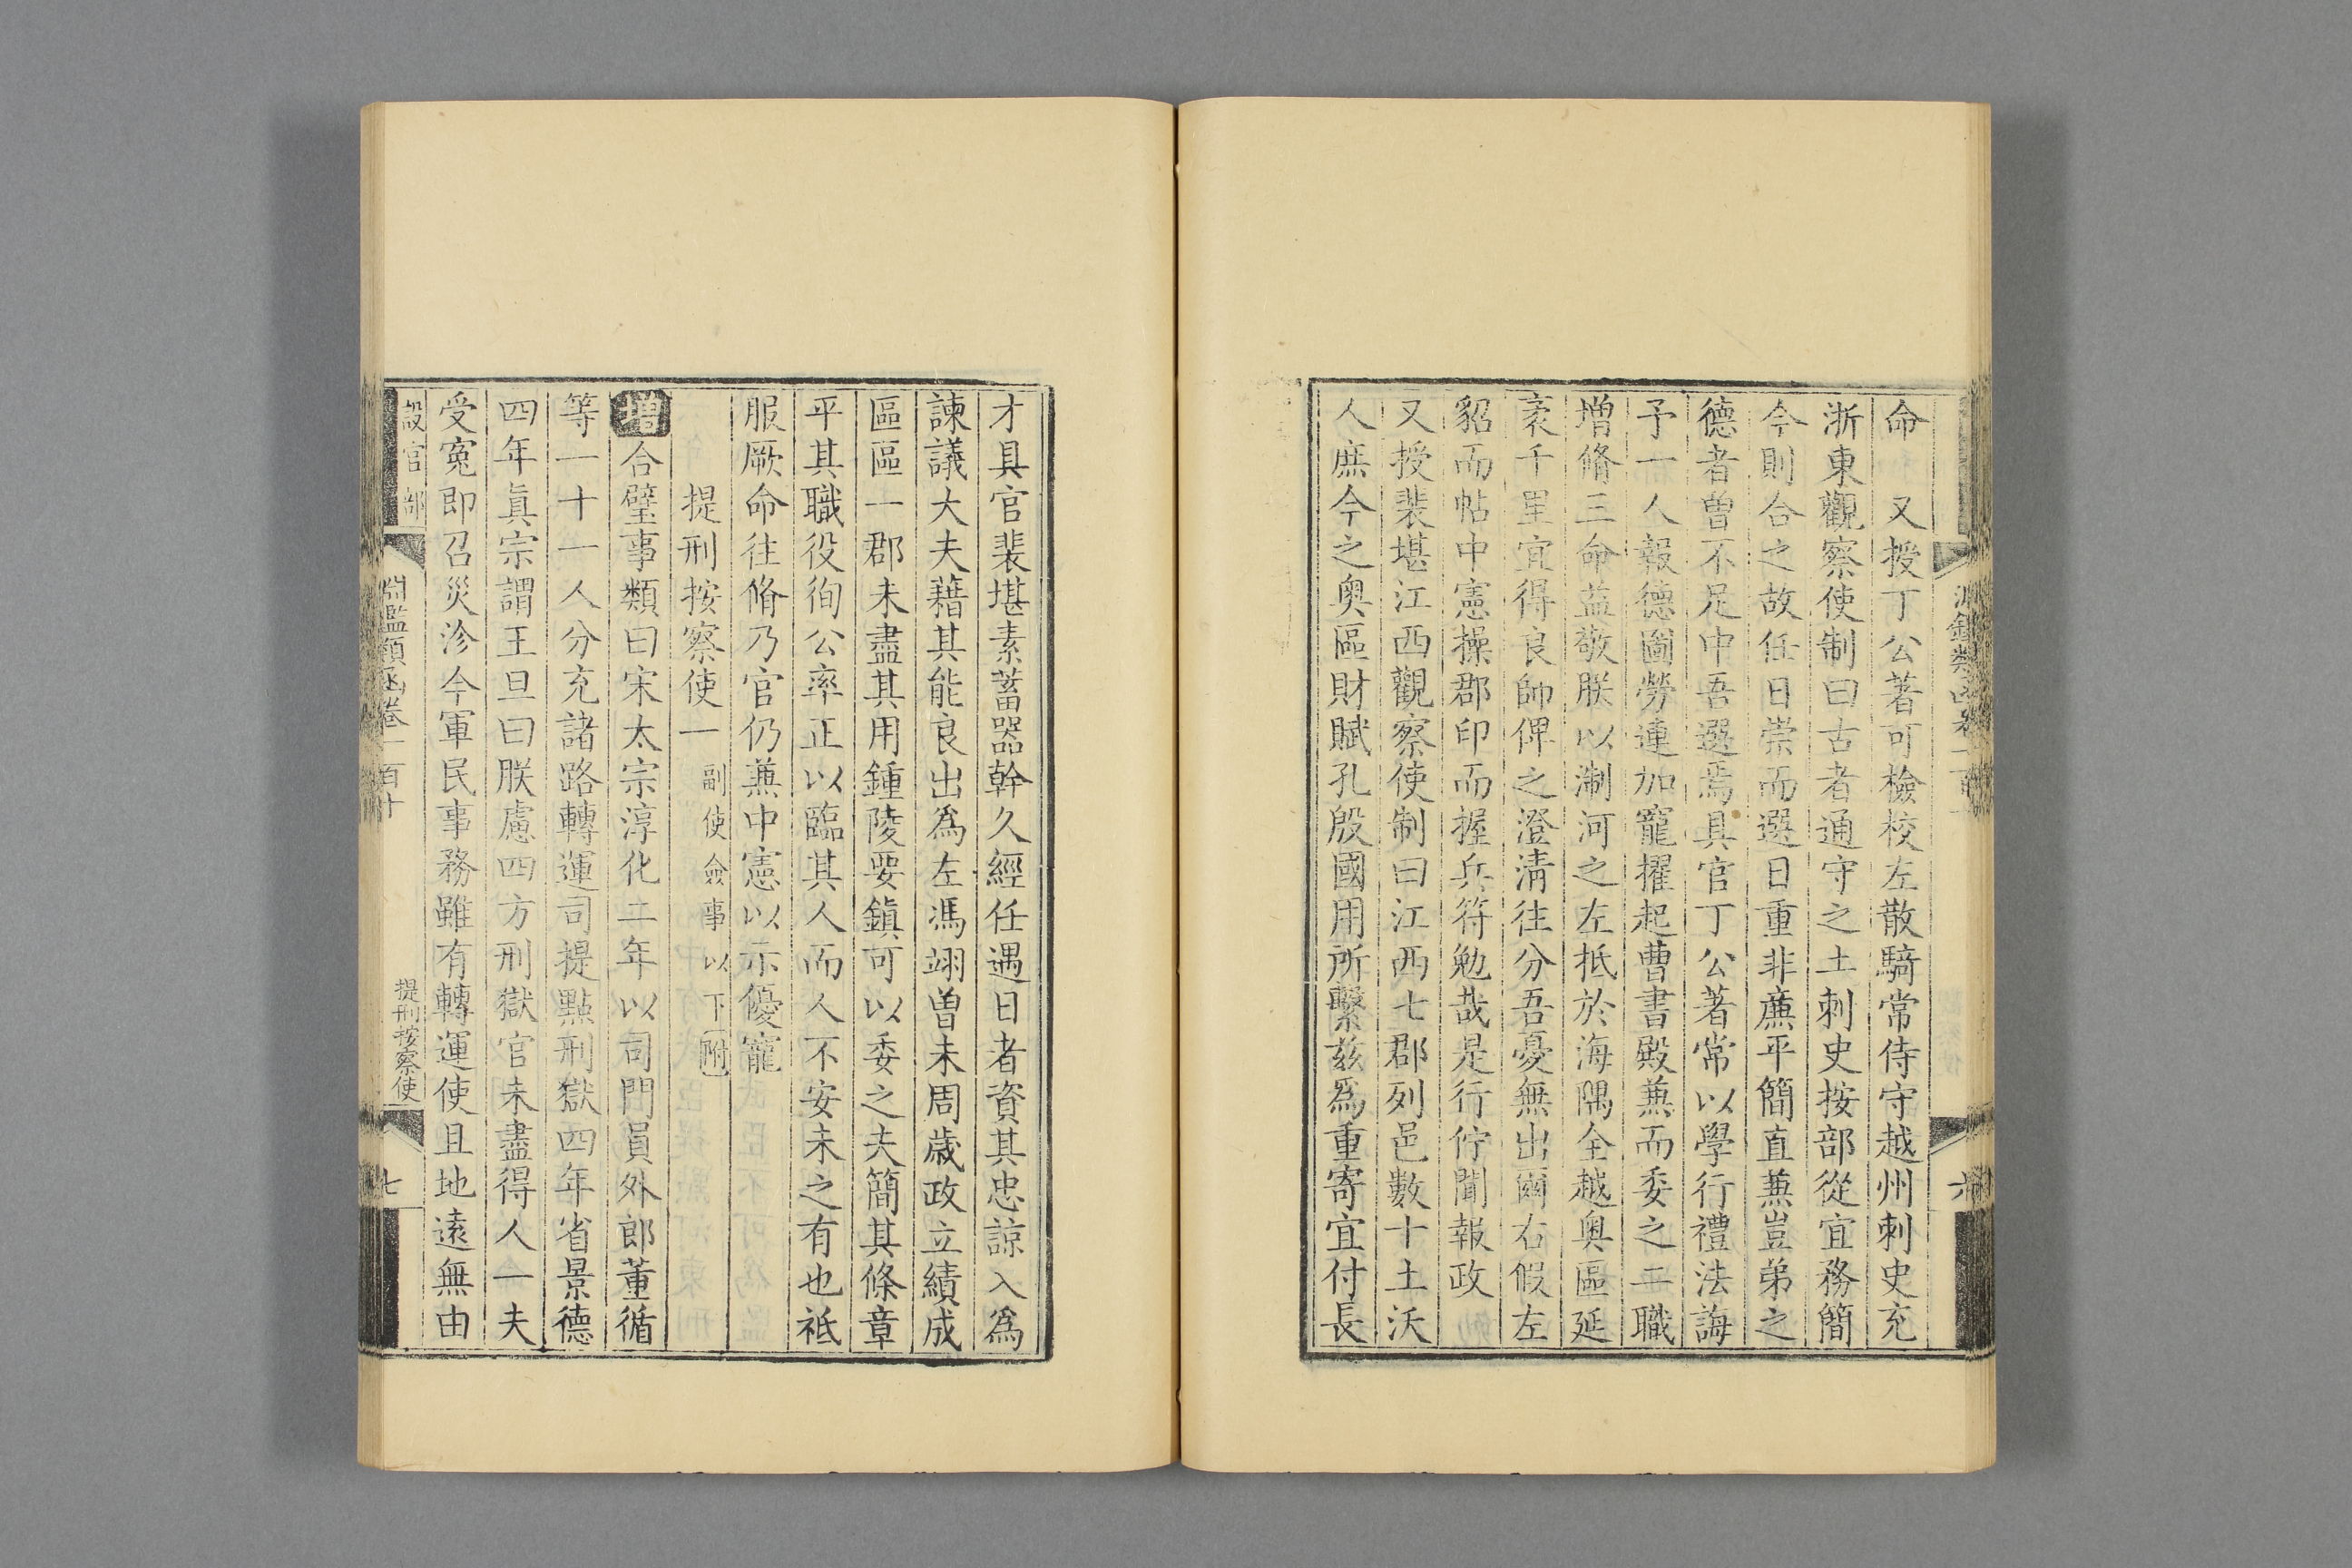 命　又授丁公著可檢校左散騎常侍守越州刺史充
浙東觀察使制曰古者通守之土刺史按部從宜務簡
今則合之故任日崇而選日重非廉平簡直兼豈弟之
德者曾不足中吾選焉具官丁公著常以學行禮法誨
予一人報德圖勞連加寵擢起曹書殿兼而委之二職
增脩三命益敬朕以淛河之左抵於海隅全越奧區延
袤千里宜得良帥俾之澄清往分吾憂無出爾右假左
貂而帖中憲操郡印而握兵符勉哉是行佇聞報政
又授裴堪江西觀察使制曰江西七郡列邑數十土沃
人庶今之奧區財賦孔殷國用所繫茲爲重寄宜付長
才具官裴堪素蓄器幹久經任遇日者資其忠諒入爲
諫議大夫藉其能良出爲左馮翊曾未周歲政立績成
區區一郡未盡其用鍾陵要鎮可以委之夫簡其條章
平其職役徇公率正以臨其人而人不安未之有也祗
服厥命往脩乃官仍兼中憲以示優寵
提刑按察使一 副使僉事以下附
增合璧事類曰宋太宗淳化二年以司門員外郎董循
等一十一人分充諸路轉運司提點刑獄四年省景德
四年眞宗謂王旦曰朕慮四方刑獄官未盡得人一夫
受寃即召災沴今軍民事務雖有轉運使且地遠無由
設官部
淵鑑類函卷一百十
提刑按察使
七